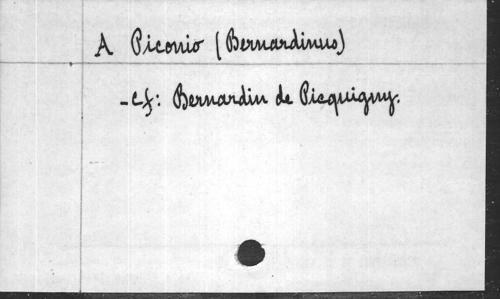 A Piconio (Bernardinus)
- cf: Bernardin de Picquigny.